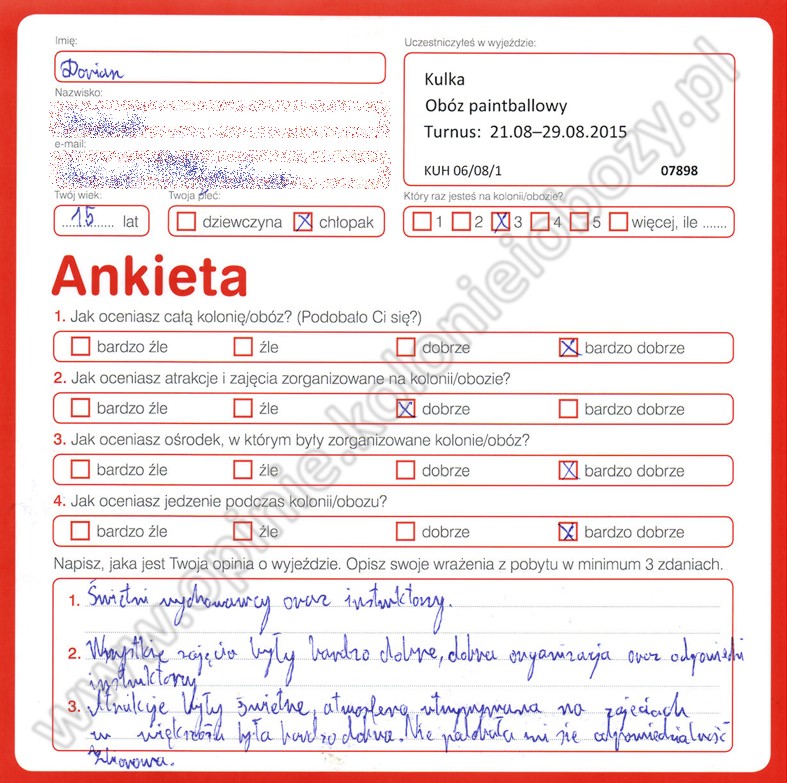 Imię:
Dorian
Uczestniczyłeś w wyjeździe:
Kulka
Obóz paintballowy
Turnus: 21.08–29.08.2015
KUH 06/08/1 07898
Nazwisko:
e-mail:
Twój wiek:
15 lat
Twoja płeć:
dziewczyna chłopak
Który raz jesteś na kolonii/obozie?
1 2 3 4 5 więcej, ile .......
Ankieta
1. Jak oceniasz całą kolonię/obóz? (Podobało Ci się?)
bardzo źle źle dobrze bardzo dobrze
2. Jak oceniasz atrakcje i zajęcia zorganizowane na kolonii/obozie?
bardzo źle źle dobrze bardzo dobrze
3. Jak oceniasz ośrodek, w którym były zorganizowane kolonie/obóz?
bardzo źle źle dobrze bardzo dobrze
4. Jak oceniasz jedzenie podczas kolonii/obozu?
bardzo źle źle dobrze bardzo dobrze
Napisz, jaka jest Twoja opinia o wyjeździe. Opisz swoje wrażenia z pobytu w minimum 3 zdaniach.
1. Świetni wychowawcy oraz instruktorzy.
2. Wszystkie zajęcia były bardzo dobre, dobra organizacja oraz odpowiedni
instruktorzy
3. Atrakcje były świetne, atmosfera utrzymywana na zajęciach
w większości była bardzo dobra. Nie podobała mi się odpowiedzialność
zbiorowa.
www.opinie.kolonieiobozy.pl